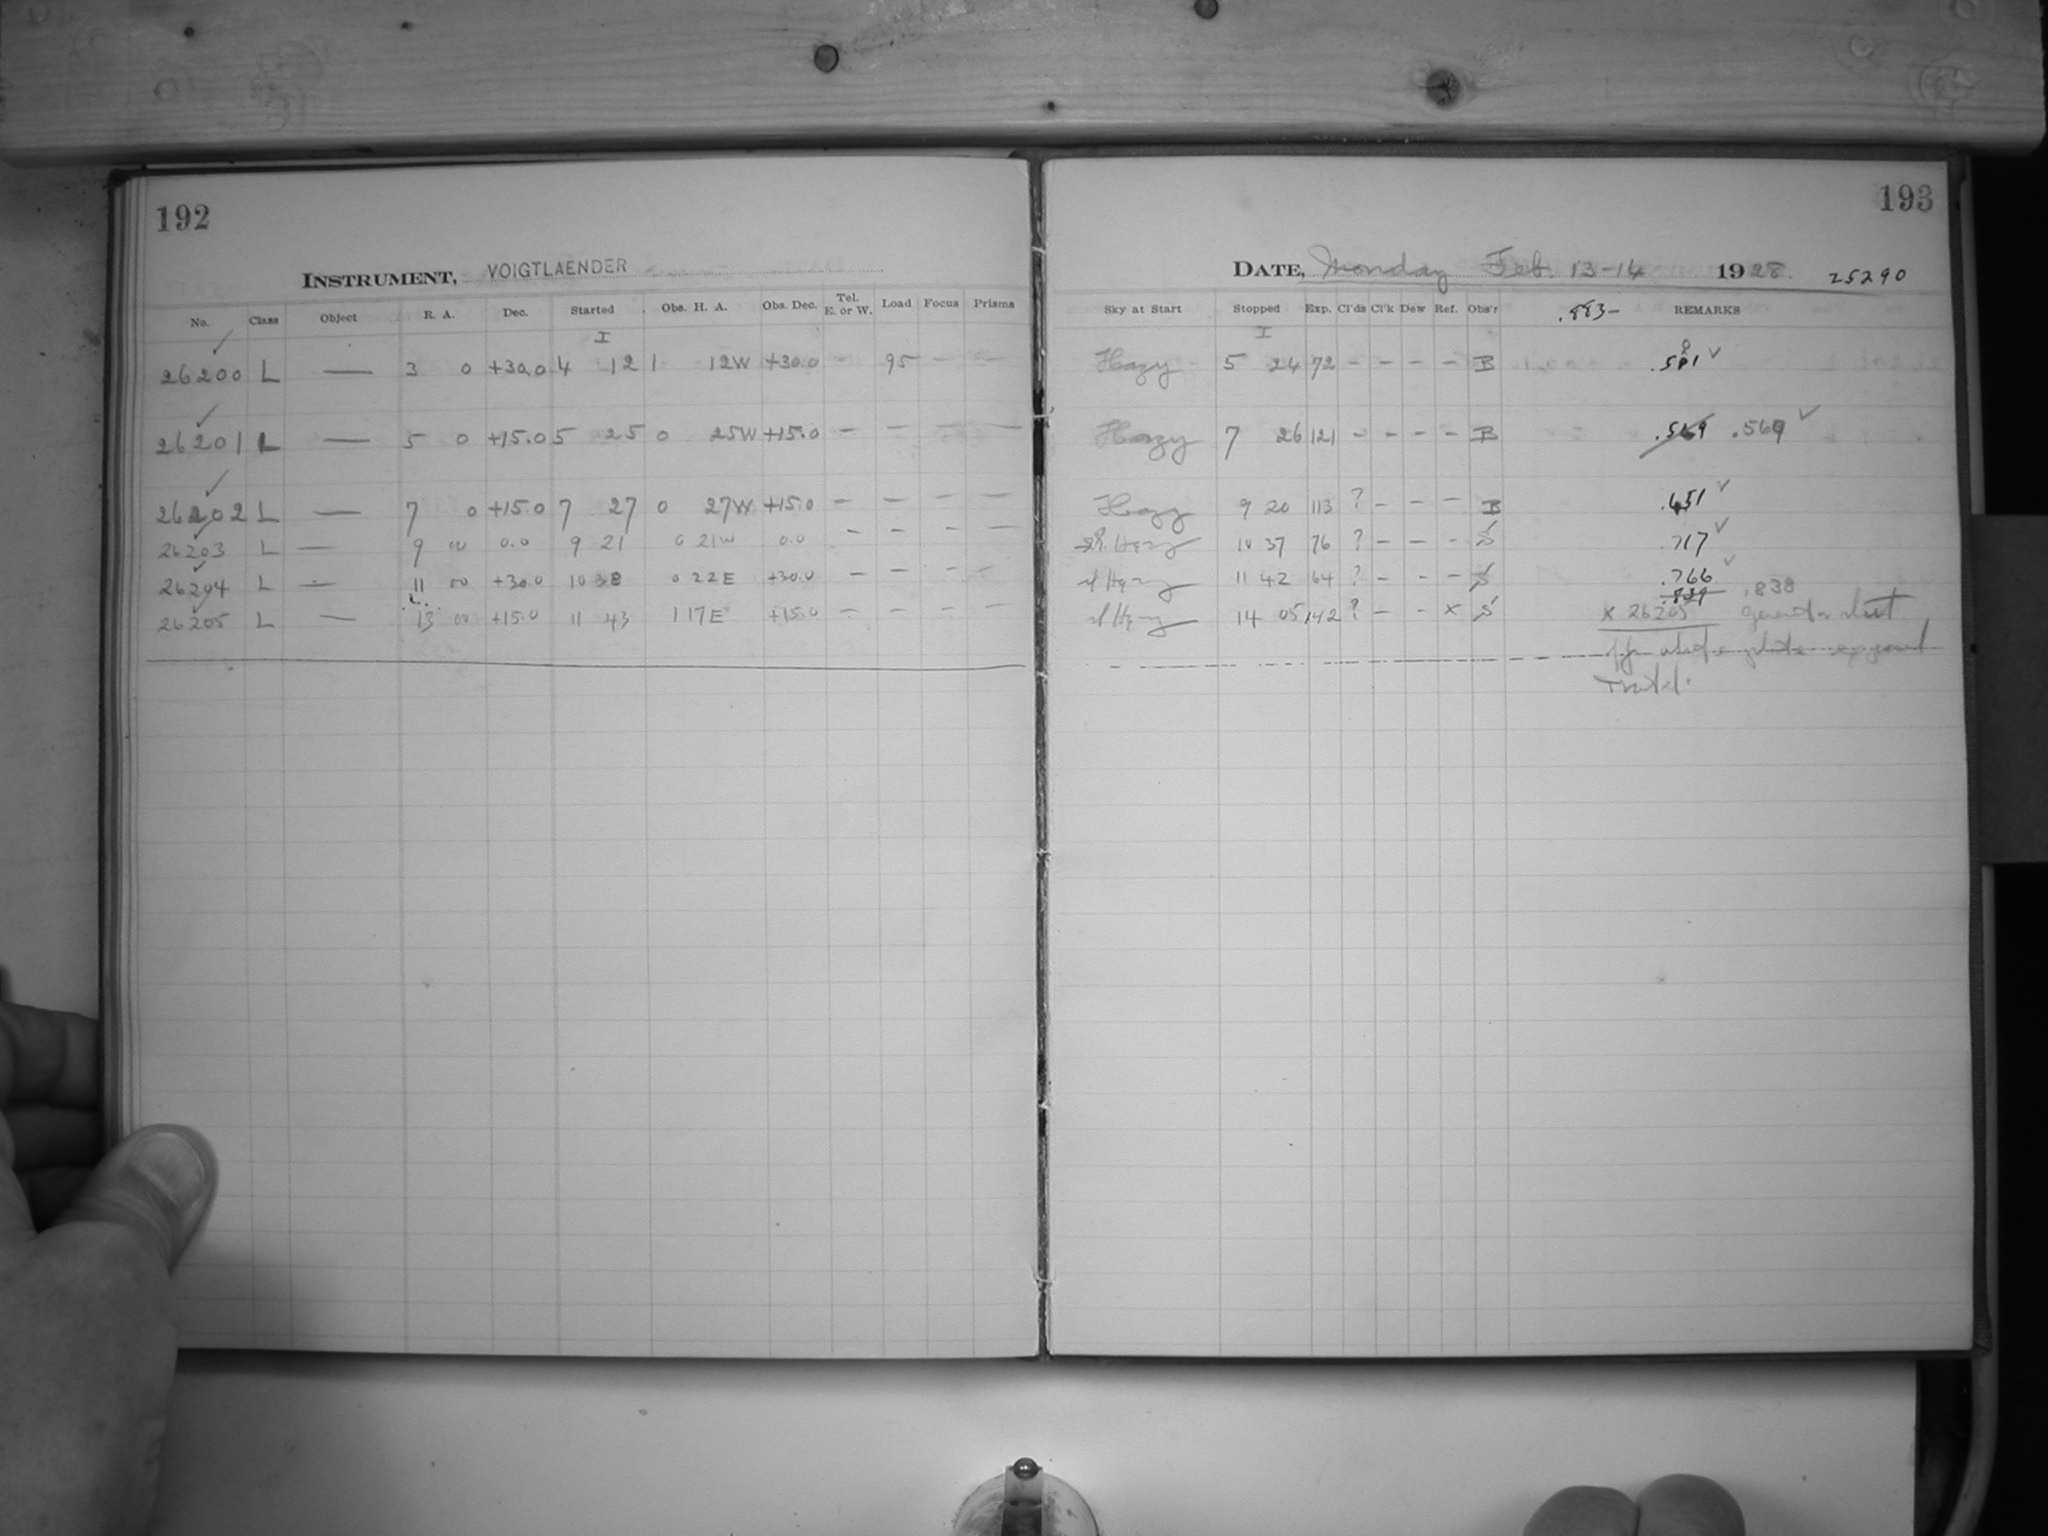 192
INSTRUMENT, VOIGTLAENDER
No. Class Object R. A. Dec. Started Obs. H. A. Obs. Dec. Tel. E. or W. Load Focus Prisms
I
26200 L — 3 0 +30.0 4 12 1 12W +30.0 – 95 – –
26201 L — 5 0 +15.0 5 25 0 25W +15.0 – – – –
26202 L — 7 0 +15.0 7 27 0 27W +15.0 – – – –
26203 L — 9 00 0.0 9 21 0 21W 0.0 – – – –
26204 L — 11 00 +30.0 10 38 0 22E +30.0 – – – –
26205 L — 13 00 +15.0 11 43 1 17E +15.0 – – – –
193
DATE, Monday Feb. 13-14 1928. 25290
Sky at Start Stopped Exp. Cl'ds Cl'k Dew Ref. Obs'r .883– REMARKS
I
Hazy 5 24 72 – – – – B
Hazy 7 26 121 – – – – B .569 .569 ✓
Hazy 9 20 113 ? – – – B .651 ✓
sl. Hazy 10 37 76 ? – – – S .717 ✓
sl Hazy 11 42 64 ? – – – S .766 ✓
.839 .838
sl Hazy 14 05 142 ? – – x S x 26205
plate exposed